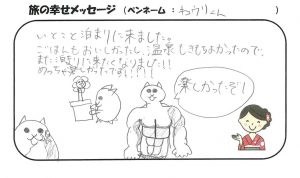 旅の幸せメッセージ（ペンネーム：わウリくん）
いとこと泊まりに来ました。
ごはんもおいしかったし、温泉もきもちよかったので、
また泊りに来たくなりました!!
めっちゃ楽しかったです!!!!
楽しかったぞ!